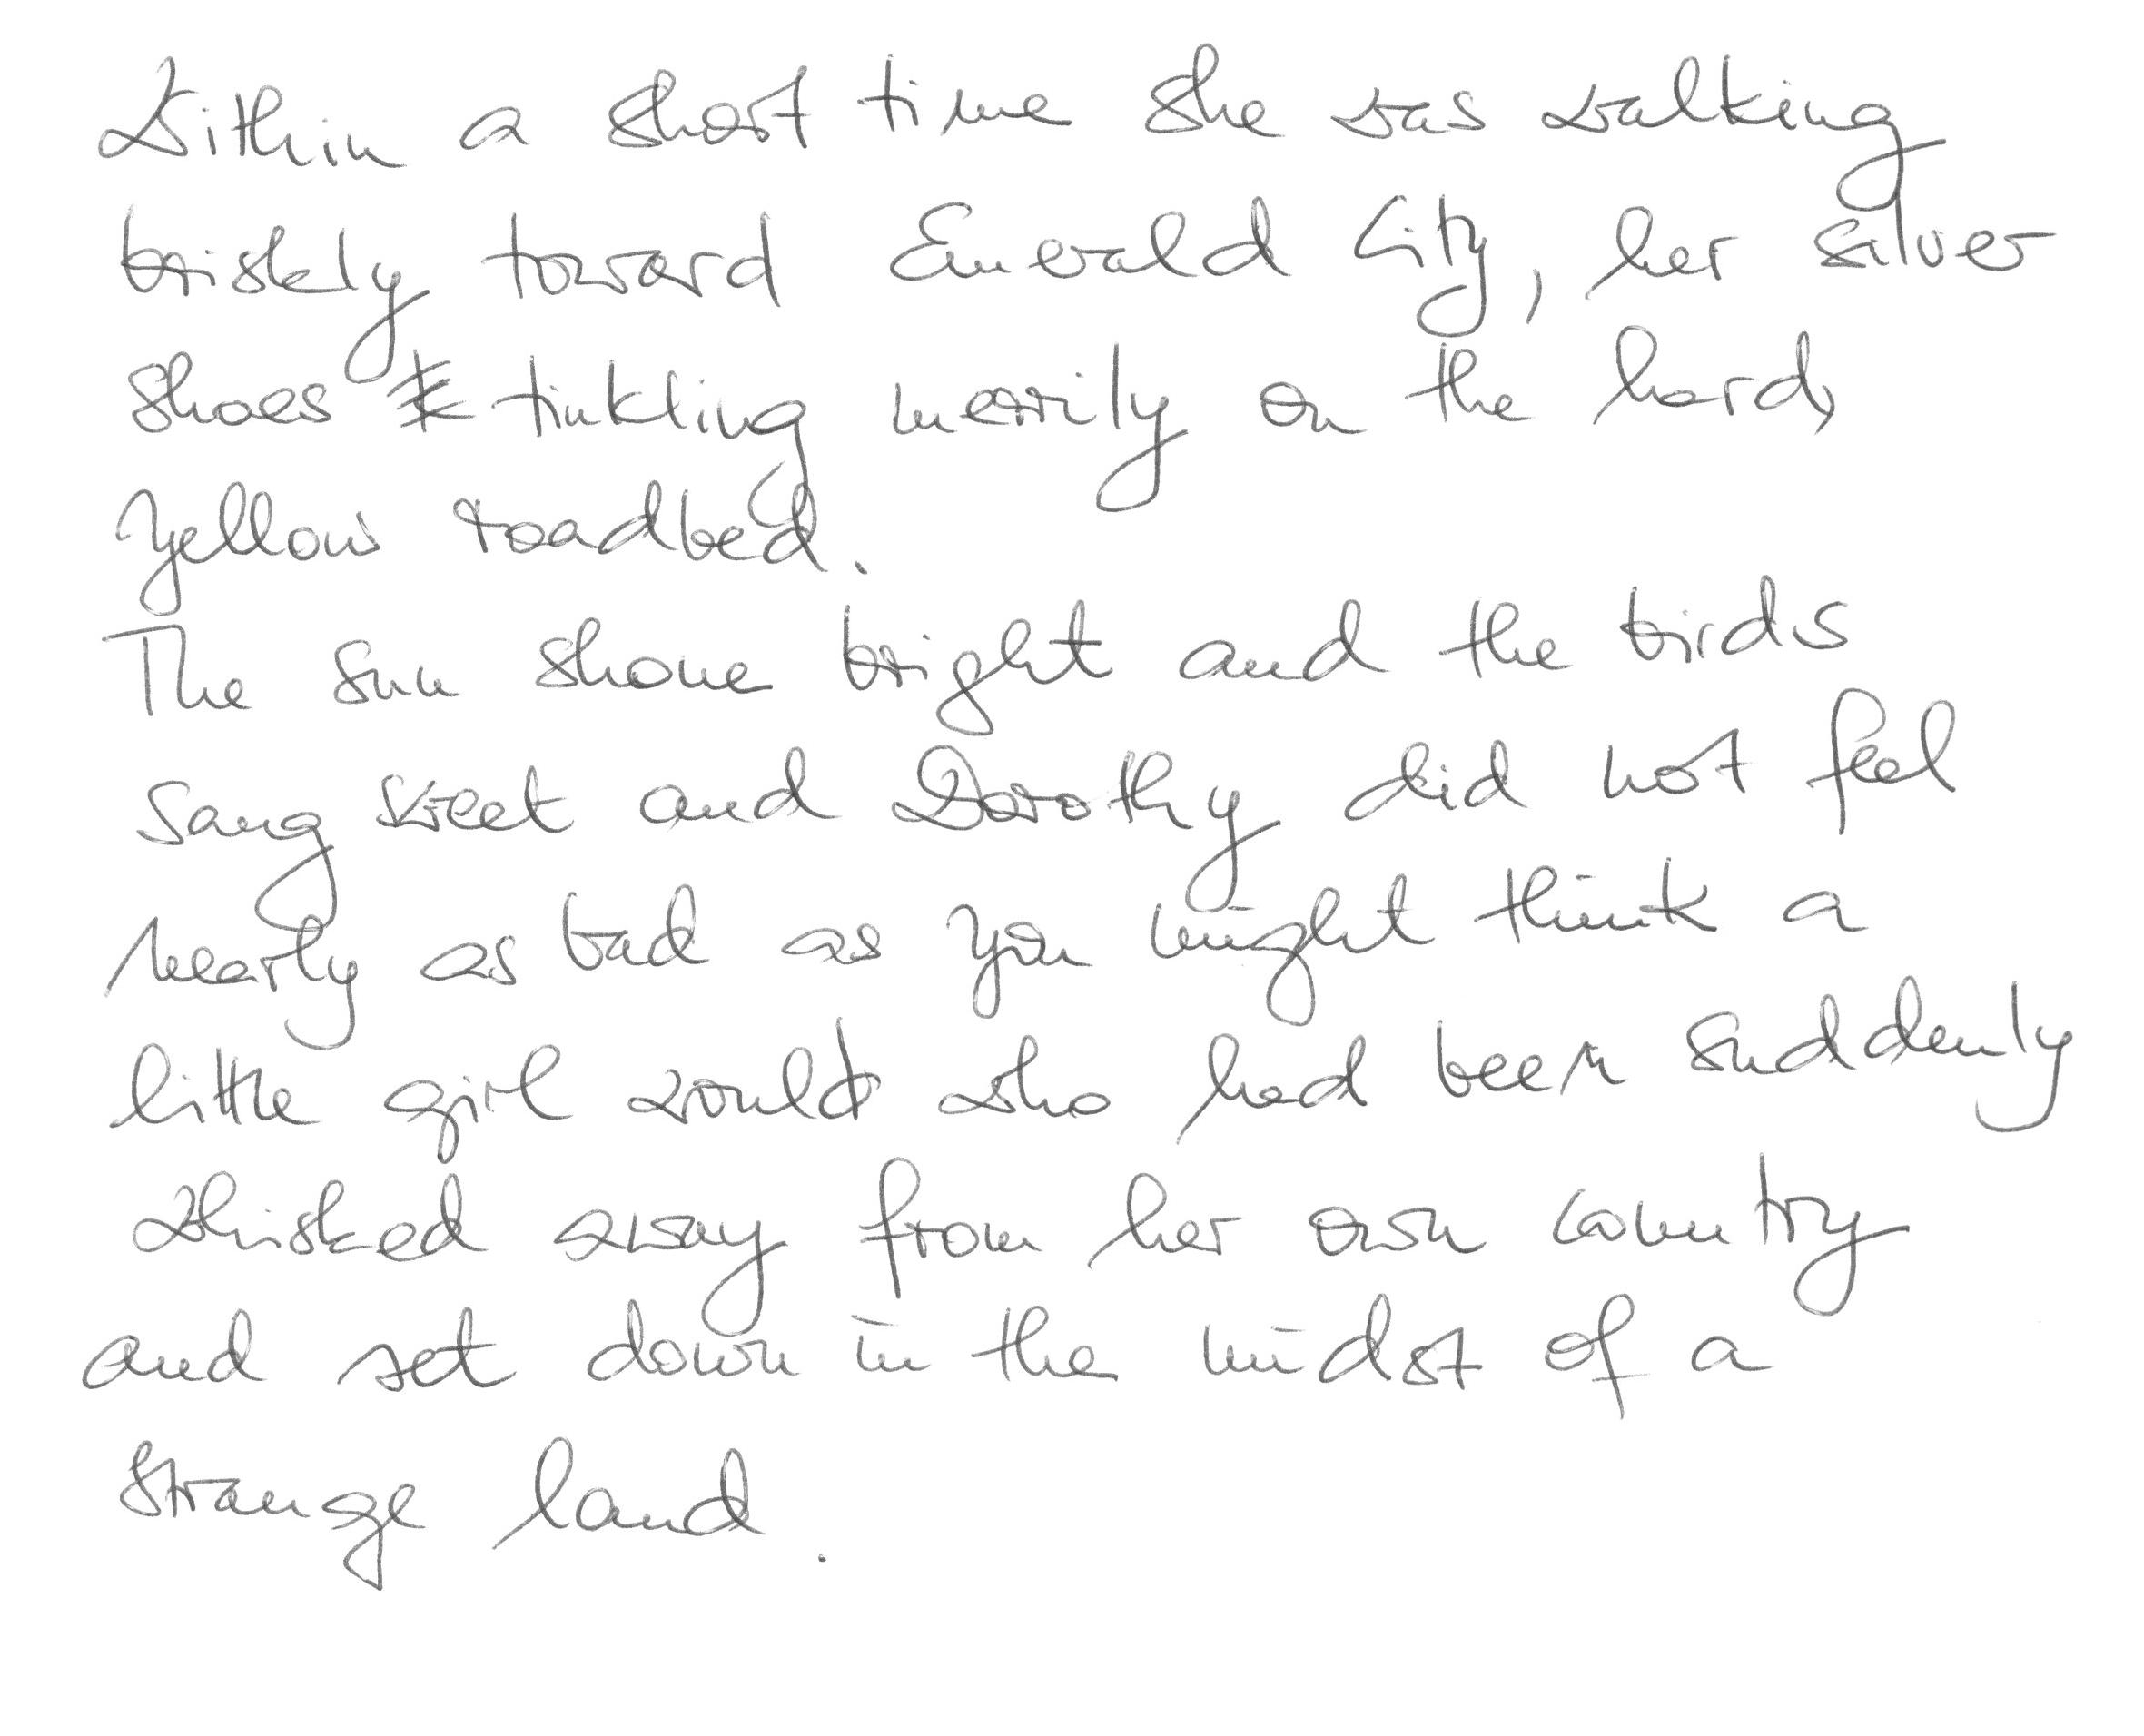 Within a short time she was walking
briskly toward Emerald City, her silver
shoes tinkling merrily on the hard,
yellow roadbed.
The sun shone bright and the birds
sang sweet and Dorothy did not feel
nearly as bad as you might think a
little girl would who had been suddenly
whisked away from her own country
and set down in the midst of a
strange land.